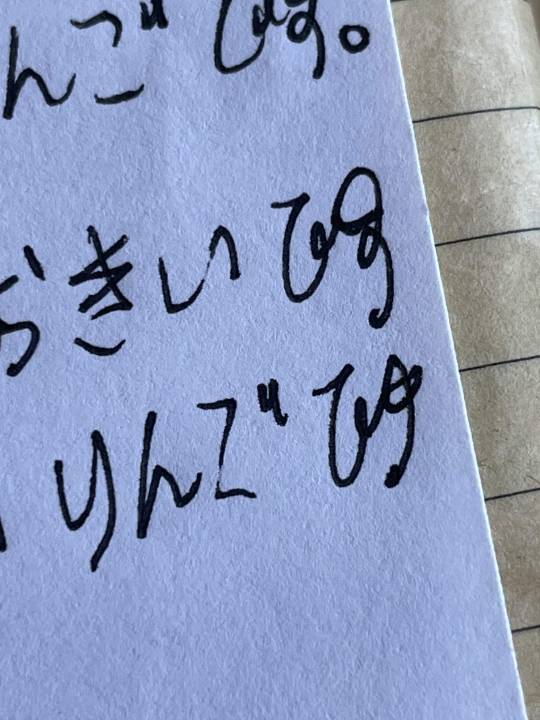 んごです。
おきいです
りんごです